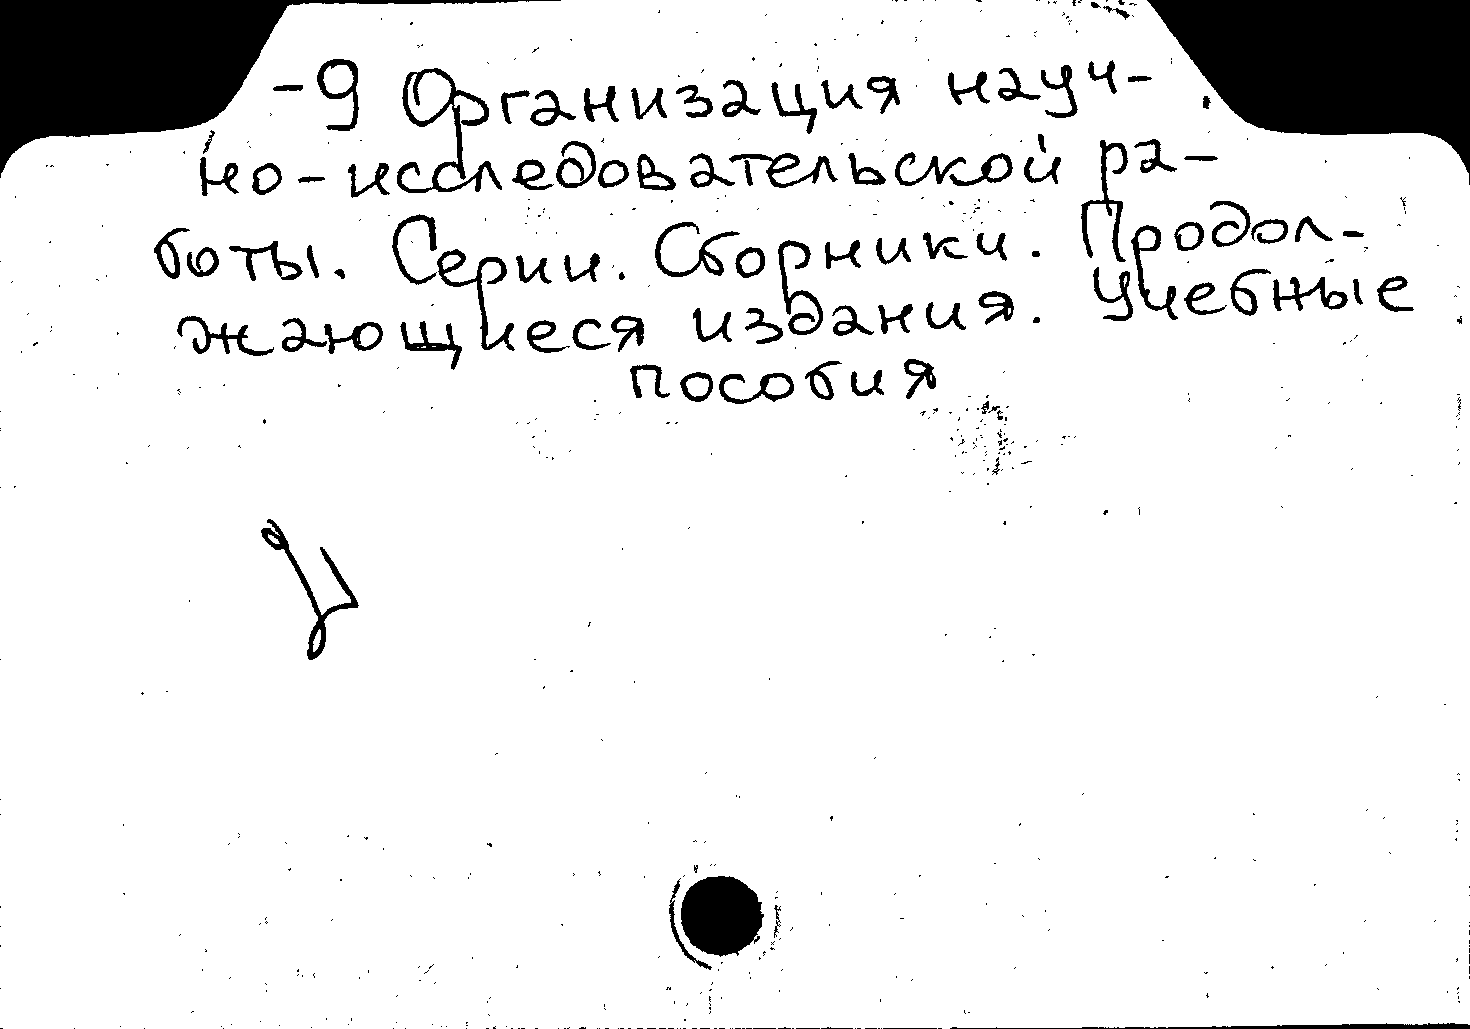 -9 Организация науч-
но-исследовательской ра-
боты. Серии. Сборники. Продол-
жающиеся издания. Учебные
пособия